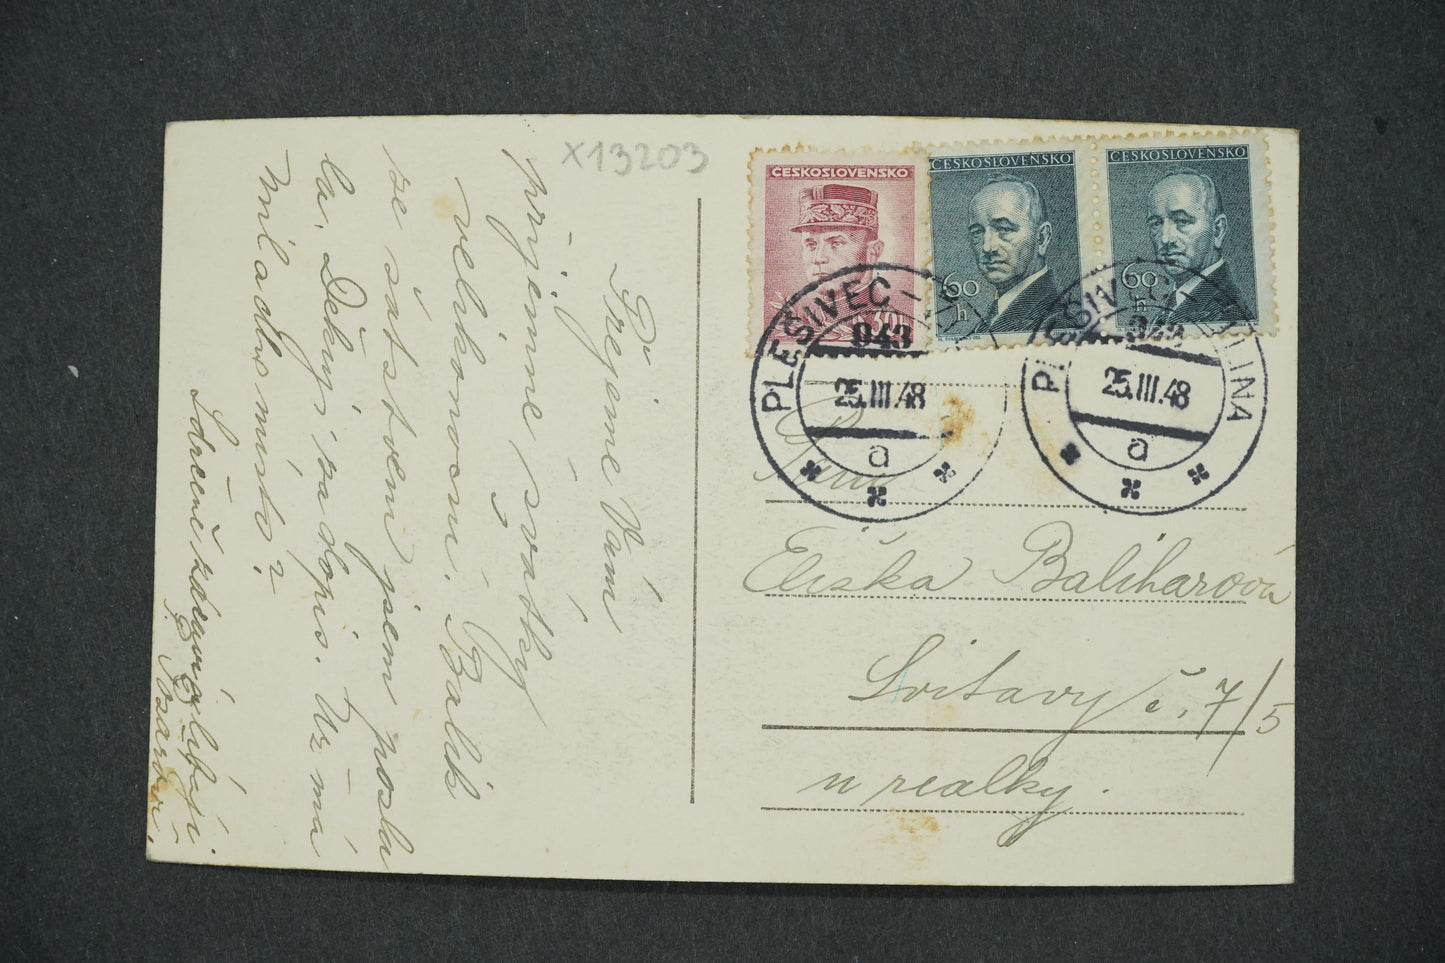 x13203
Přejeme Vám
příjemné svátky
velikonoční. Balík
se šatstvem jsem posla
la. Děkuji za dopis. Už má
míladlo místo?
Srdečně zdraví a líbají
ČESKOSLOVENSKO
30h
ČESKOSLOVENSKO
60
h
ČESKOSLOVENSKO
60
h
PLEŠIVEC -
943
25.III.48
a
PLEŠIVEC - ILINA
943
25.III.48
a
Paní
Eliška Balcharová
Svitavy č. 7/5
u realky.